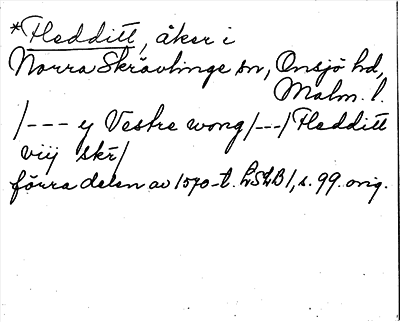 *Hedditt, åker i
Norra Skrävlinge sn, Onsjö hd,
Malm. l.
/--- y Vestre wong /---/ Hedditt
viij skr/
förra delen av 1570-t. LSLB 1, s. 99. orig.